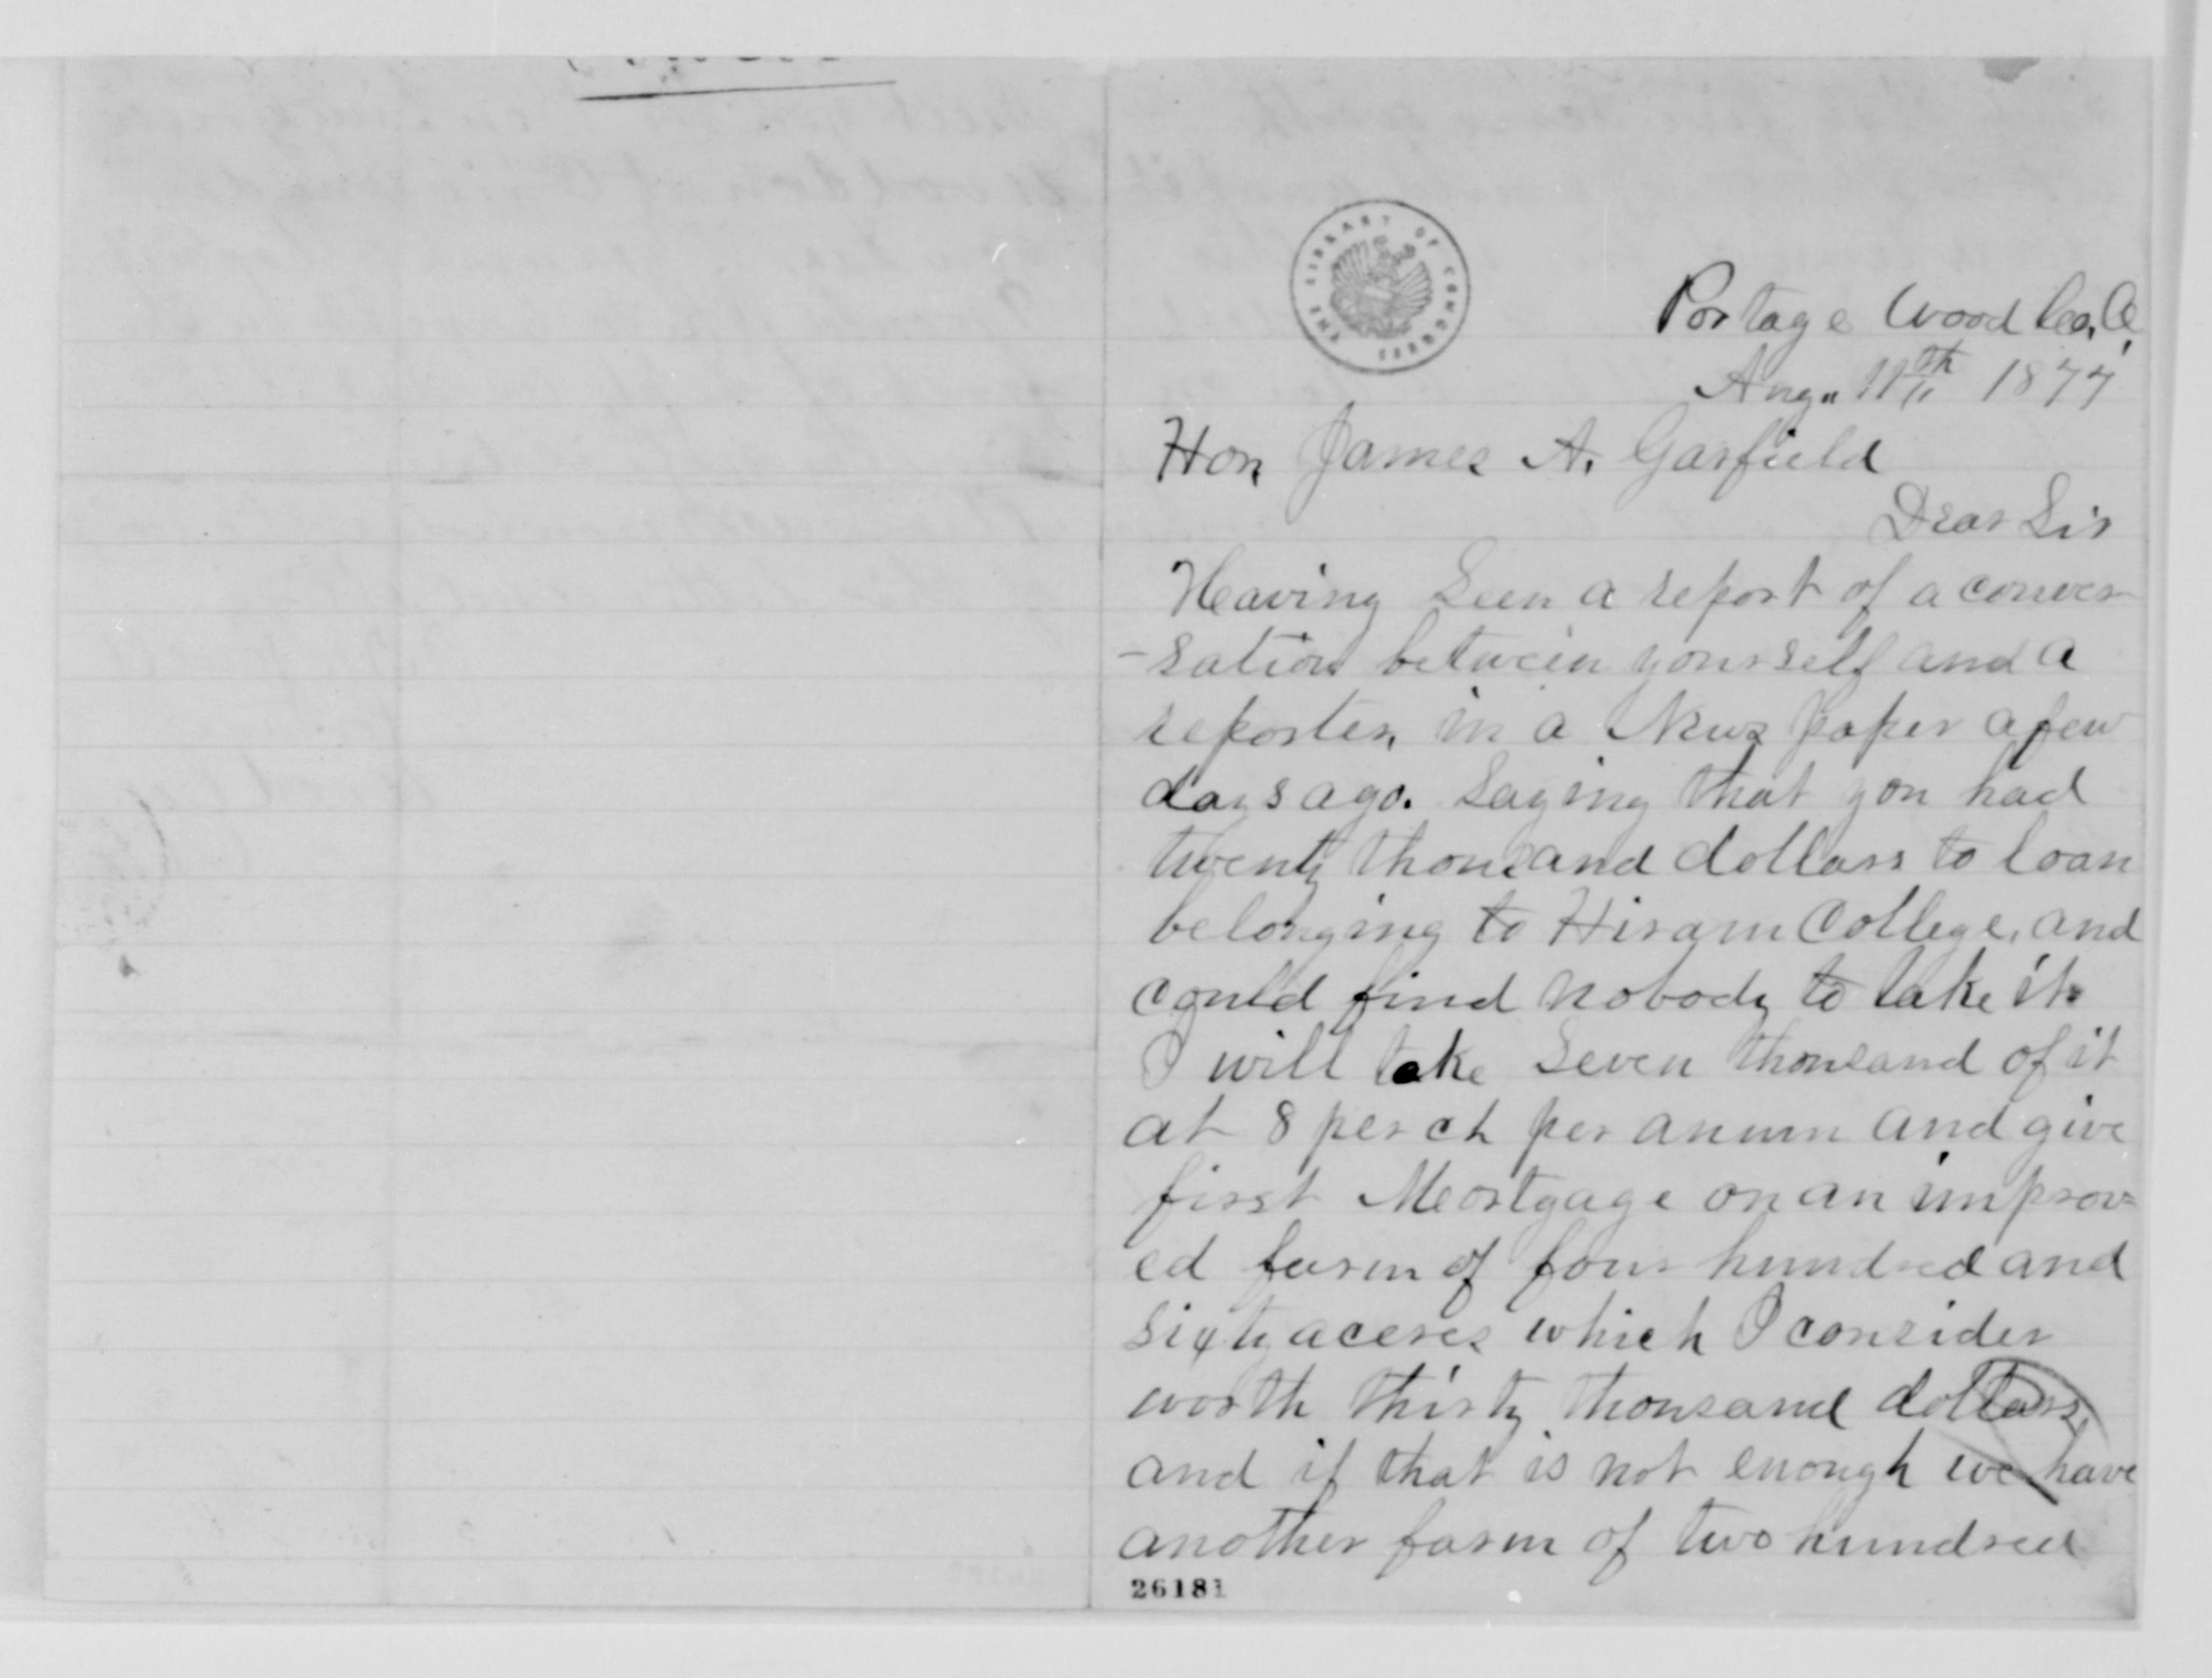 THE LIBRARY OF CONGRESS
Portage Wood Co, O,
Aug. 11th 1877
Hon James A. Garfield
Dear Sir
Heaving Seen a report of a conver
-sation between yourself and a
reporter, in a News paper a few
days ago. Saying that you had
twenty thousand dollars to loan
belonging to Hiram College, and
could find nobody to take it.
I will take Seven thousand of it
at 8 per ct per anum and give
first Meortgage on an improv=
ed farm of four hundred and
Sixty aceres which I consider
worth thirty thousand dollars,
and if that is not enough we have
another farm of two hundred
26181